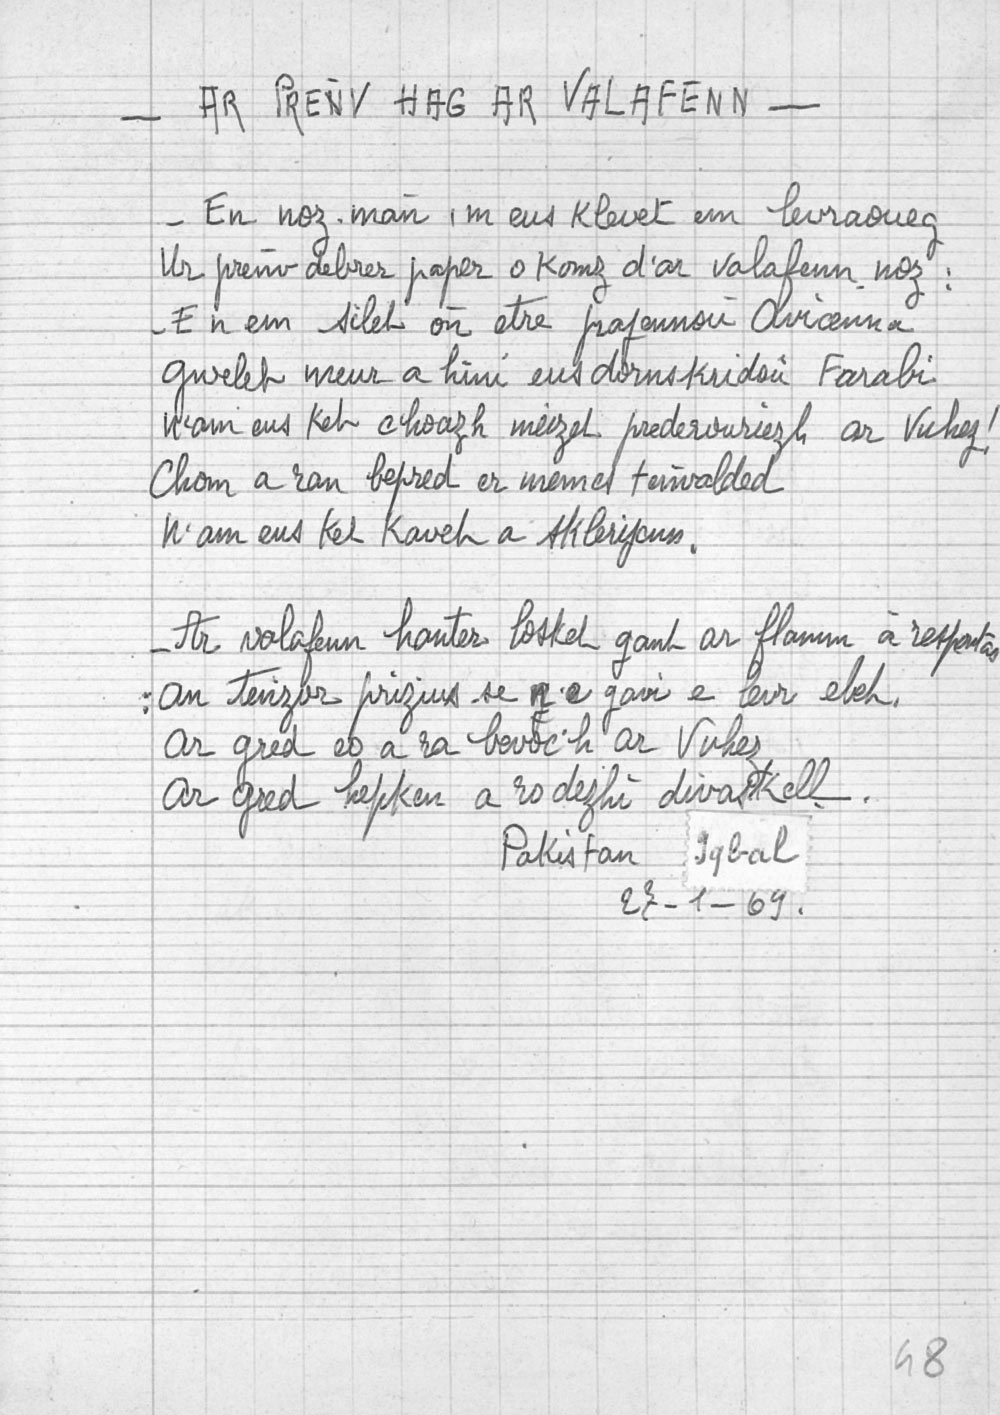 — AR PREÑV HAG AR VALAFENN —
_ En noz-mañ 'm eus klevet em levraoueg
Ur preñv debrer paper o komz d'ar valafenn noz :
_ E n em silet on etre pajennoù Avicenna
gwelet meur a hini eus dornskridoù Farabi
N'am eus ket c'hoazh meizet prederouriezh ar Vuhez !
Chom a ran bepred er memes teñvalded
N'am eus ket kavet a sklerijenn.
_ Ar valafenn hanter losket gant ar flamm a respontas
: an teñzor prizius-se n'e gavi e levr ebet.
Ar gred eo a ra bevoc'h ar Vuhez
Ar gred hepken a ro dezhi divaskell.
Pakistan Iqbal
27-1-69.
48